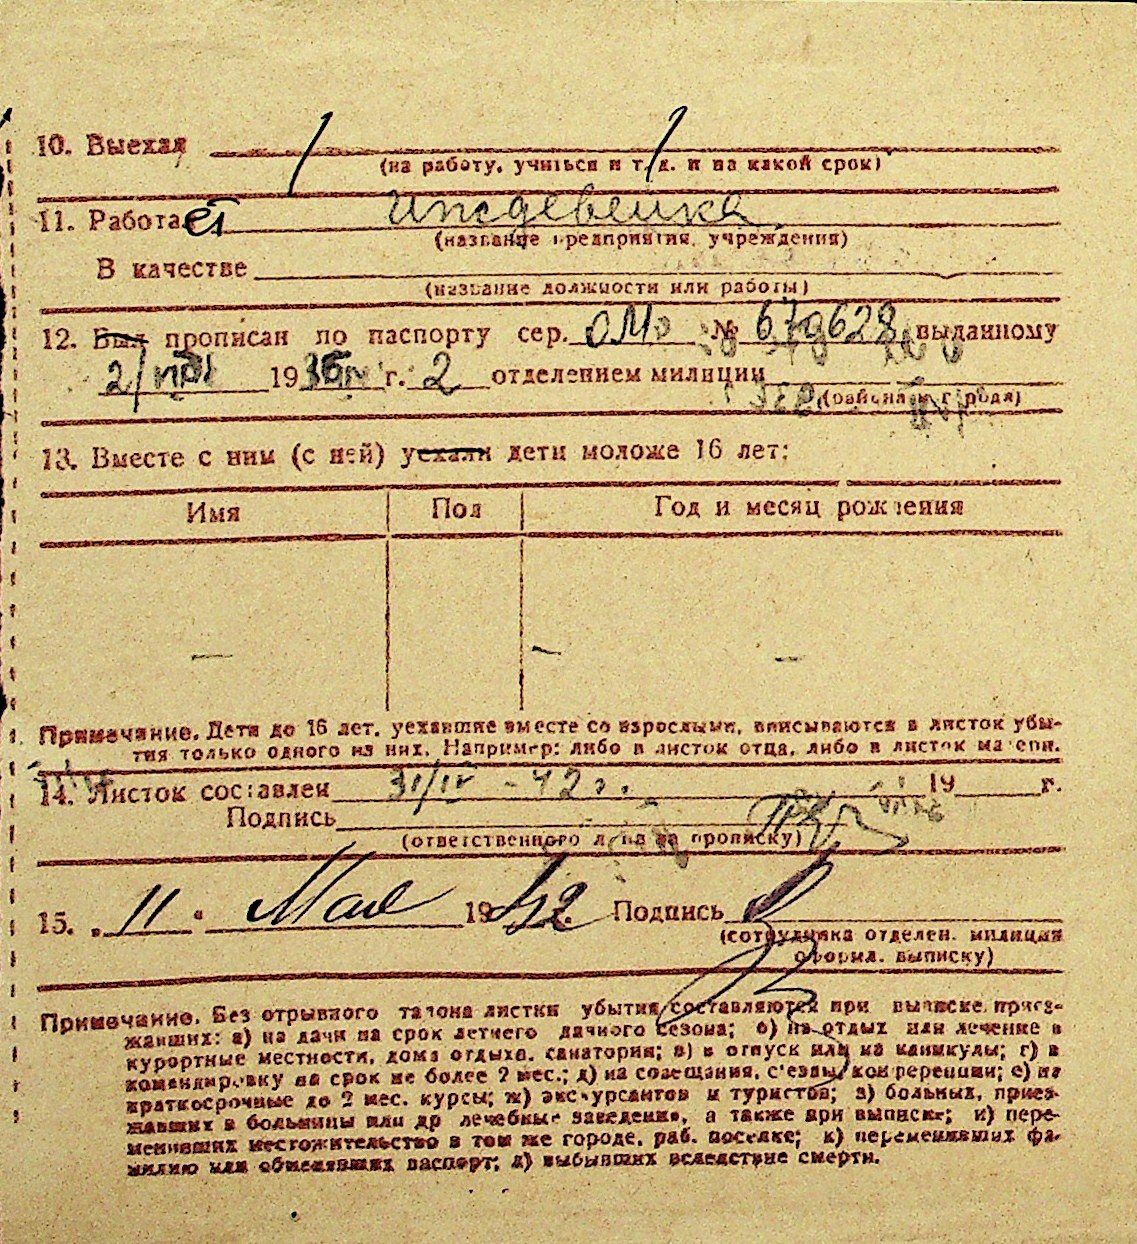 10. Выехал
(на работу, учиться и т. д. и на какой срок)
11. Работает иждевенка
(название предприятия, учреждения)
В качестве
(название должности или работы)
12. Был прописан по паспорту сер. ОМо № 679628 выданному
2/ 1936 г. 2 отделением милиции
(района и города)
13. Вместе с ним (с ней) уехали дети моложе 16 лет:
Имя Пол Год и месяц рождения
— — —
Примечание. Дети до 16 лет, уехавшие вместе со взрослыми, вписываются в листок убы-
тия только одного из них. Например: либо в листок отца, либо в листок матери.
14. Листок составлен 31/IV - 42 г. 19 г.
Подпись
(ответственного лица за прописку)
15. „ 11 " Мая 1942. Подпись
(сотрудника отделен. милиции
оформл. выписку)
Примечание. Без отрывного талона листки убытия составляются при выписке приез-
жавших: а) на дачи на срок летнего дачного сезона; б) на отдых или лечение в
курортные местности, дома отдыха, санатории; в) в отпуск или на каникулы; г) в
командировку на срок не более 2 мес.; д) на совещания, с'езды, конференции; е) на
краткосрочные до 2 мес. курсы; ж) экскурсантов и туристов; з) больных, приез-
жавших в больницы или др лечебные заведения, а также при выписке; и) пере-
менивших местожительство в том же городе, раб. поселке; к) переменивших фа-
милию или обменявших паспорт; л) выбывших вследствие смерти.